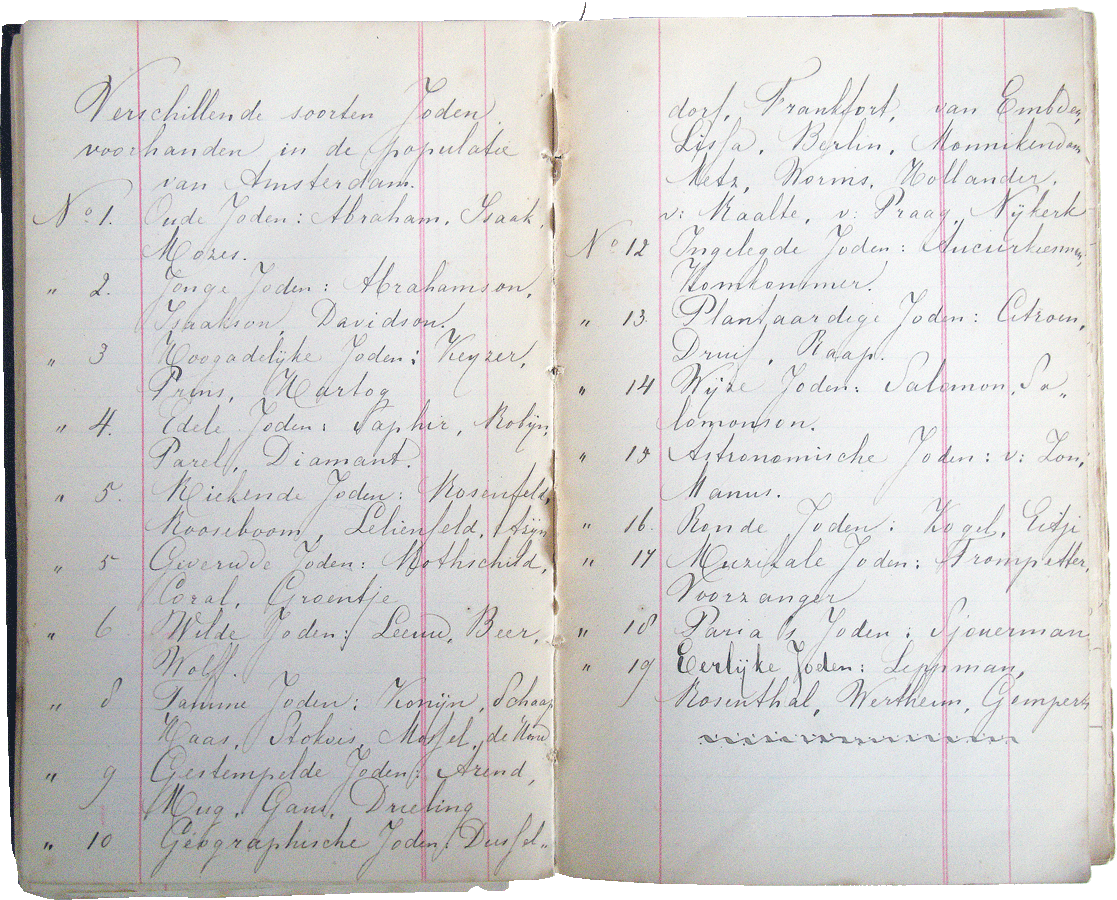 Verschillende soorten Joden
voorhanden in de populatie
van Amsterdam.
No 1. Oude Joden: Abraham, Isaak,
Mozes.
" 2. Jonge Joden: Abrahamson,
Isaakson, Davidson.
" 3 Hoogadelijke Joden: Keyzer,
Prins, Hartog
" 4. Edele Joden: Saphir, Robijn,
Parel, Diamant.
" 5. Riekende Joden: Rosenfeld,
Rooseboom, Lelienfeld,
" 5 Joden: Rothschild,
Coral, Groentje
" 6. Wilde Joden: Leeuw, Beer,
Wolff.
" 8 Tamme Joden: Konijn, Schaap
Haas, Stokvis, Mossel, de Hond
" 9 Gestempelde Joden: Arend,
Mug, Gans, Drieling
" 10 Geographische Joden: Dussel-
dorf, Frankfort, van Embden,
Lissa, Berlin, Monnikendam
Metz, Worms, Hollander,
v: Raalte, v: Praag, Nijkerk
No 12 Ingelegde Joden: Augurkiesman,
Komkommer.
" 13. Plantaardige Joden: Citroen,
Druif, Raap.
" 14 Wijze Joden: Salomon, Sa„
lomonson.
" 15 Astronomische Joden: v: Zon,
Manus.
" 16. Ronde Joden: Kogel, Eitje
" 17 Muzikale Joden: Trompetter,
Voorzanger
" 18 Paria's Joden: Sjouerman
" 19 Eerlijke Joden: Lippman,
Rosenthal, Wertheim, Gompertz